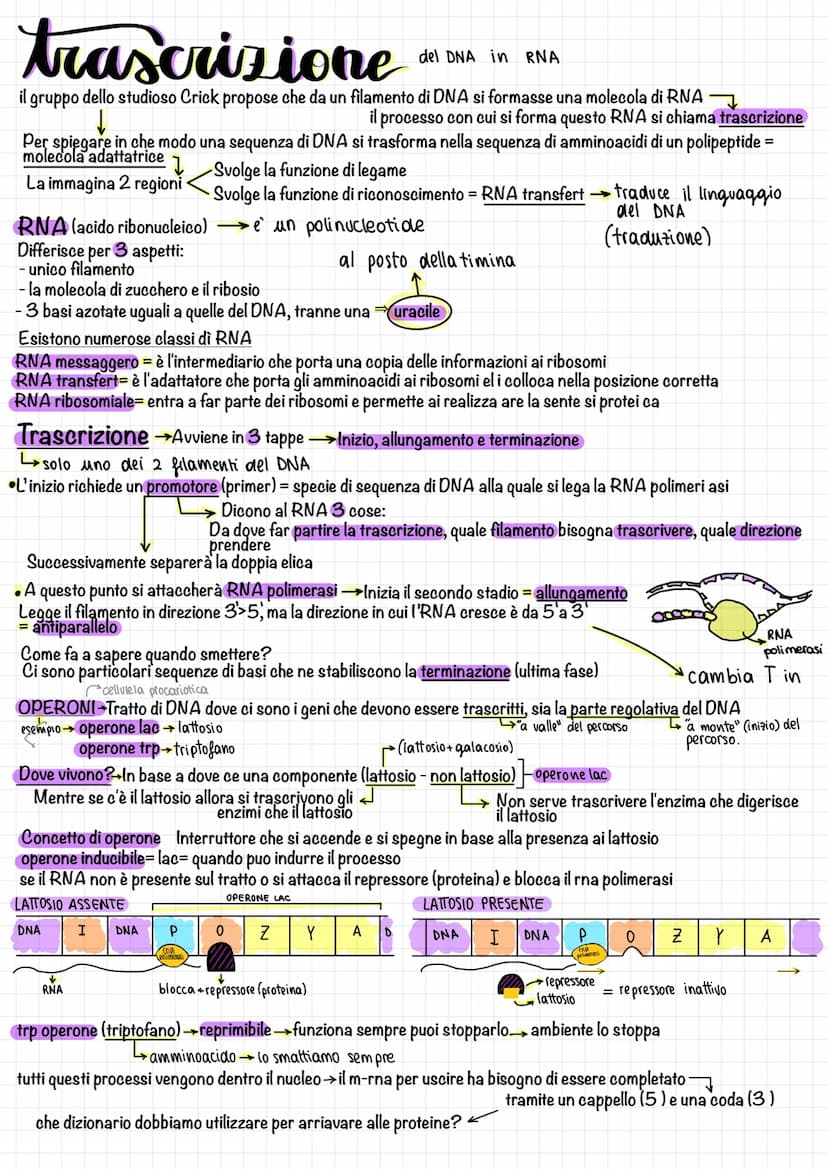 trascrizione del DNA in RNA
il gruppo dello studioso Crick propose che da un filamento di DNA si formasse una molecola di RNA
il processo con cui si forma questo RNA si chiama trascrizione
Per spiegare in che modo una sequenza di DNA si trasforma nella sequenza di amminoacidi di un polipeptide =
molecola adattatrice
La immagina 2 regioni
Svolge la funzione di legame
Svolge la funzione di riconoscimento = RNA transfert → traduce il linguaggio
del DNA
(traduzione)
RNA (acido ribonucleico) → e' un polinucleotide
Differisce per 3 aspetti:
- unico filamento
al posto della timina
- la molecola di zucchero e il ribosio
- 3 basi azotate uguali a quelle del DNA, tranne una ⇒ uracile
Esistono numerose classi di RNA
RNA messaggero = è l'intermediario che porta una copia delle informazioni ai ribosomi
RNA transfert= è l'adattatore che porta gli amminoacidi ai ribosomi el i colloca nella posizione corretta
RNA ribosomiale= entra a far parte dei ribosomi e permette ai realizza are la sente si protei ca
Trascrizione → Avviene in 3 tappe → Inizio, allungamento e terminazione
solo uno dei 2 filamenti del DNA
•L'inizio richiede un promotore (primer) = specie di sequenza di DNA alla quale si lega la RNA polimeri asi
Dicono al RNA 3 cose:
Da dove far partire la trascrizione, quale filamento bisogna trascrivere, quale direzione
prendere
Successivamente separerà la doppia elica
• A questo punto si attaccherà RNA polimerasi → Inizia il secondo stadio = allungamento
Legge il filamento in direzione 3'>5', ma la direzione in cui l'RNA cresce è da 5' a 3'
= antiparallelo
RNA
polimerasi
Come fa a sapere quando smettere?
Ci sono particolari sequenze di basi che ne stabiliscono la terminazione (ultima fase)
cambia T in
cellulela procariotica
OPERONI → Tratto di DNA dove ci sono i geni che devono essere trascritti, sia la parte regolativa del DNA
esempio → operone lac → lattosio
"a valle" del percorso
"a monte" (inizio) del
percorso.
operone trp → triptofano
(lattosio + galacosio)
Dove vivono? → In base a dove ce una componente (lattosio - non lattosio) operone lac
Mentre se c'è il lattosio allora si trascrivono gli
enzimi che il lattosio
Non serve trascrivere l'enzima che digerisce
il lattosio
Concetto di operone Interruttore che si accende e si spegne in base alla presenza ai lattosio
operone inducibile= lac= quando puo indurre il processo
se il RNA non è presente sul tratto o si attacca il repressore (proteina) e blocca il rna polimerasi
LATTOSIO ASSENTE
OPERONE LAC
LATTOSIO PRESENTE
DNA I DNA P O Z Y A D
DNA I DNA P O Z Y A
RNA polimerasi
rna polimerasi
RNA
blocca ← repressore (proteina)
repressore
lattosio
= repressore inattivo
trp operone (triptofano) → reprimibile → funziona sempre puoi stopparlo → ambiente lo stoppa
amminoacido → lo smaltiamo sempre
tutti questi processi vengono dentro il nucleo → il m-rna per uscire ha bisogno di essere completato
tramite un cappello (5 ) e una coda (3 )
che dizionario dobbiamo utilizzare per arriavare alle proteine?